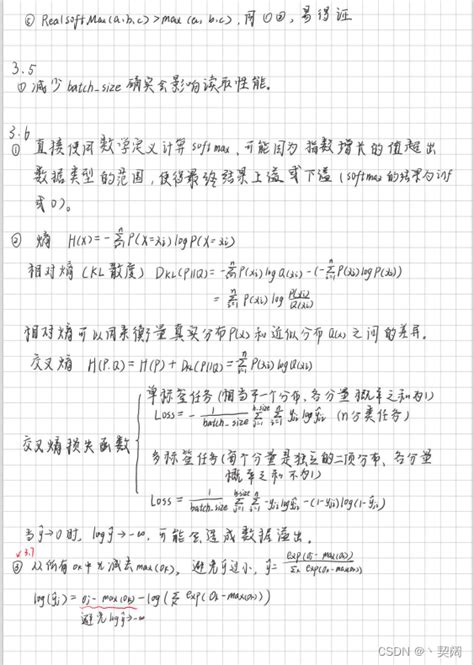 ⑥ RealSoftMax(a,b,c) > max(a,b,c), 同①②, 易得证
3.5
① 减少 batch_size 确实会影响读取性能。
3.6
① 直接使用数学定义计算 softmax, 可能因为指数增长的值超出
数据类型的范围, 使得最终结果上溢或下溢 (softmax的结果为inf
或0)。
② 熵 H(X) = -Σⁿᵢ₌₁ P(X=xi) log P(X=xi)
相对熵 (KL散度) DKL(P||Q) = -Σⁿᵢ₌₁ P(xi) log Q(xi) - (-Σⁿᵢ₌₁ P(xi) log P(xi))
= Σⁿᵢ₌₁ P(xi) log P(xi)/Q(xi)
相对熵可以用来衡量真实分布P(x)和近似分布Q(x)之间的差异。
交叉熵 H(P,Q) = H(P) + DKL(P||Q) = Σⁿᵢ₌₁ P(xi) log Q(xi)
交叉熵损失函数
单标签任务 (相当于一个分布, 各分量概率之和为1)
Loss = - 1/batch_size Σ Σ yi log ŷi (n分类任务)
多标签任务 (每个分量是独立的二项分布, 各分量
概率之和不为1)
Loss = 1/batch_size Σ Σ -yi log ŷi - (1-yi) log(1-ŷi)
当ŷ→0时, log ŷ → -∞, 可能会造成数据溢出。
x 3.7
③ 从所有ok中先减去max(ok), 避免ŷ过小, ŷ = exp(oj - max(ok)) / Σk exp(ok - max(ok))
log(ŷj) = oj - max(ok) - log(Σ exp(ok - max(ok)))
避免log ŷ → -∞
CSDN @丶契阔